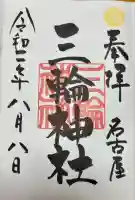 奉拝 名古屋
三輪神社
令和二年八月八日